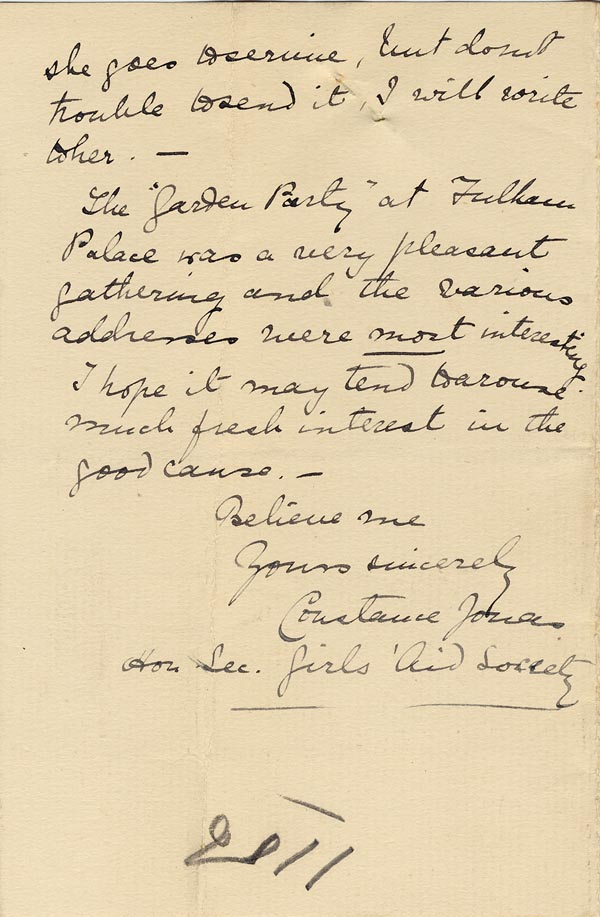 she goes to service, but dont
trouble to send it, I will write
to her. —
The "Garden Party" at Fulham
Palace was a very pleasant
gathering and the various
addresses were most interesting.
I hope it may tend to arouse
much fresh interest in the
good cause. —
Believe me
Yours sincerely
Constance Jonas
Hon. Sec. Girls' Aid Society